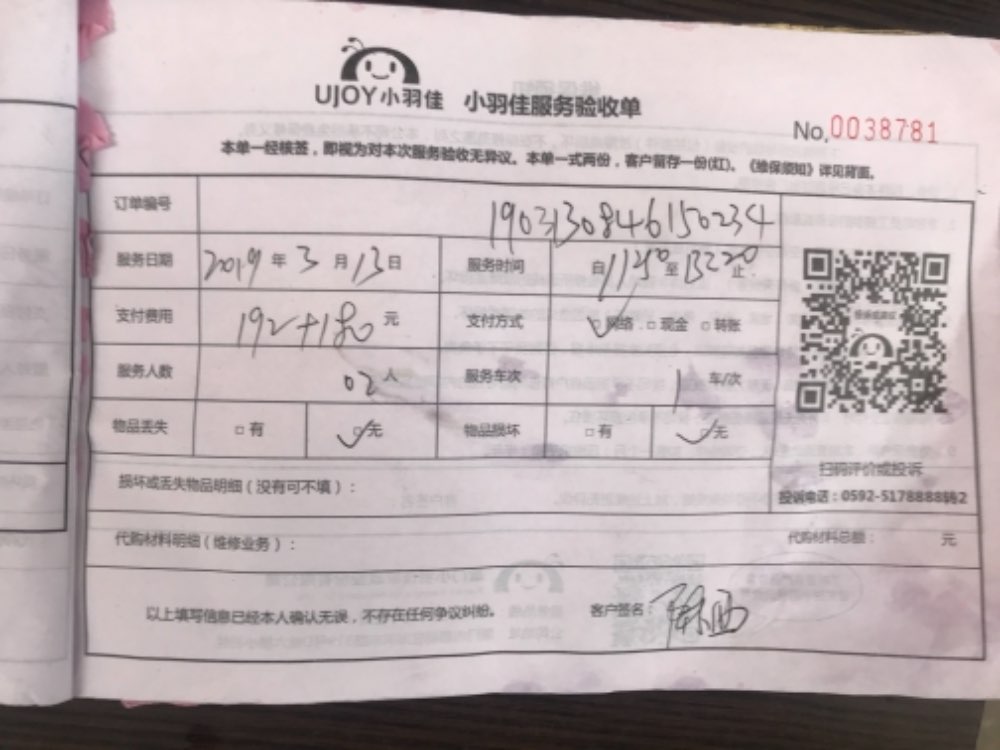 UJOY小羽佳 小羽佳服务验收单
No.0038781
本单一经核签，即视为对本次服务验收无异议。本单一式两份，客户留存一份(红)。《维保须知》详见背面。
订单编号 190313084615​0234
服务日期 2019 年 3 月 13 日 服务时间 自 1150 至 1320 止
支付费用 192+180 元 支付方式 网络 □ 现金 □ 转账
服务人数 02 人 服务车次 1 车/次
物品丢失 □ 有 ✓ 无 物品损坏 □ 有 ✓ 无
扫码评价或投诉
投诉电话：0592-5178888转2
损坏或丢失物品明细（没有可不填）：
代购材料明细（维修业务）： 代购材料总额： 元
以上填写信息已经本人确认无误，不存在任何争议纠纷。 客户签名：